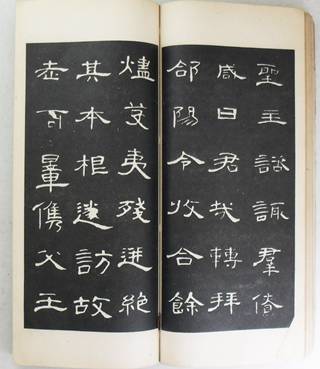 聖主諮諏羣僚
咸曰君哉轉拜
郃陽令收合餘
燼芟夷殘迸絶
其本根遂訪故
老商量儁艾王